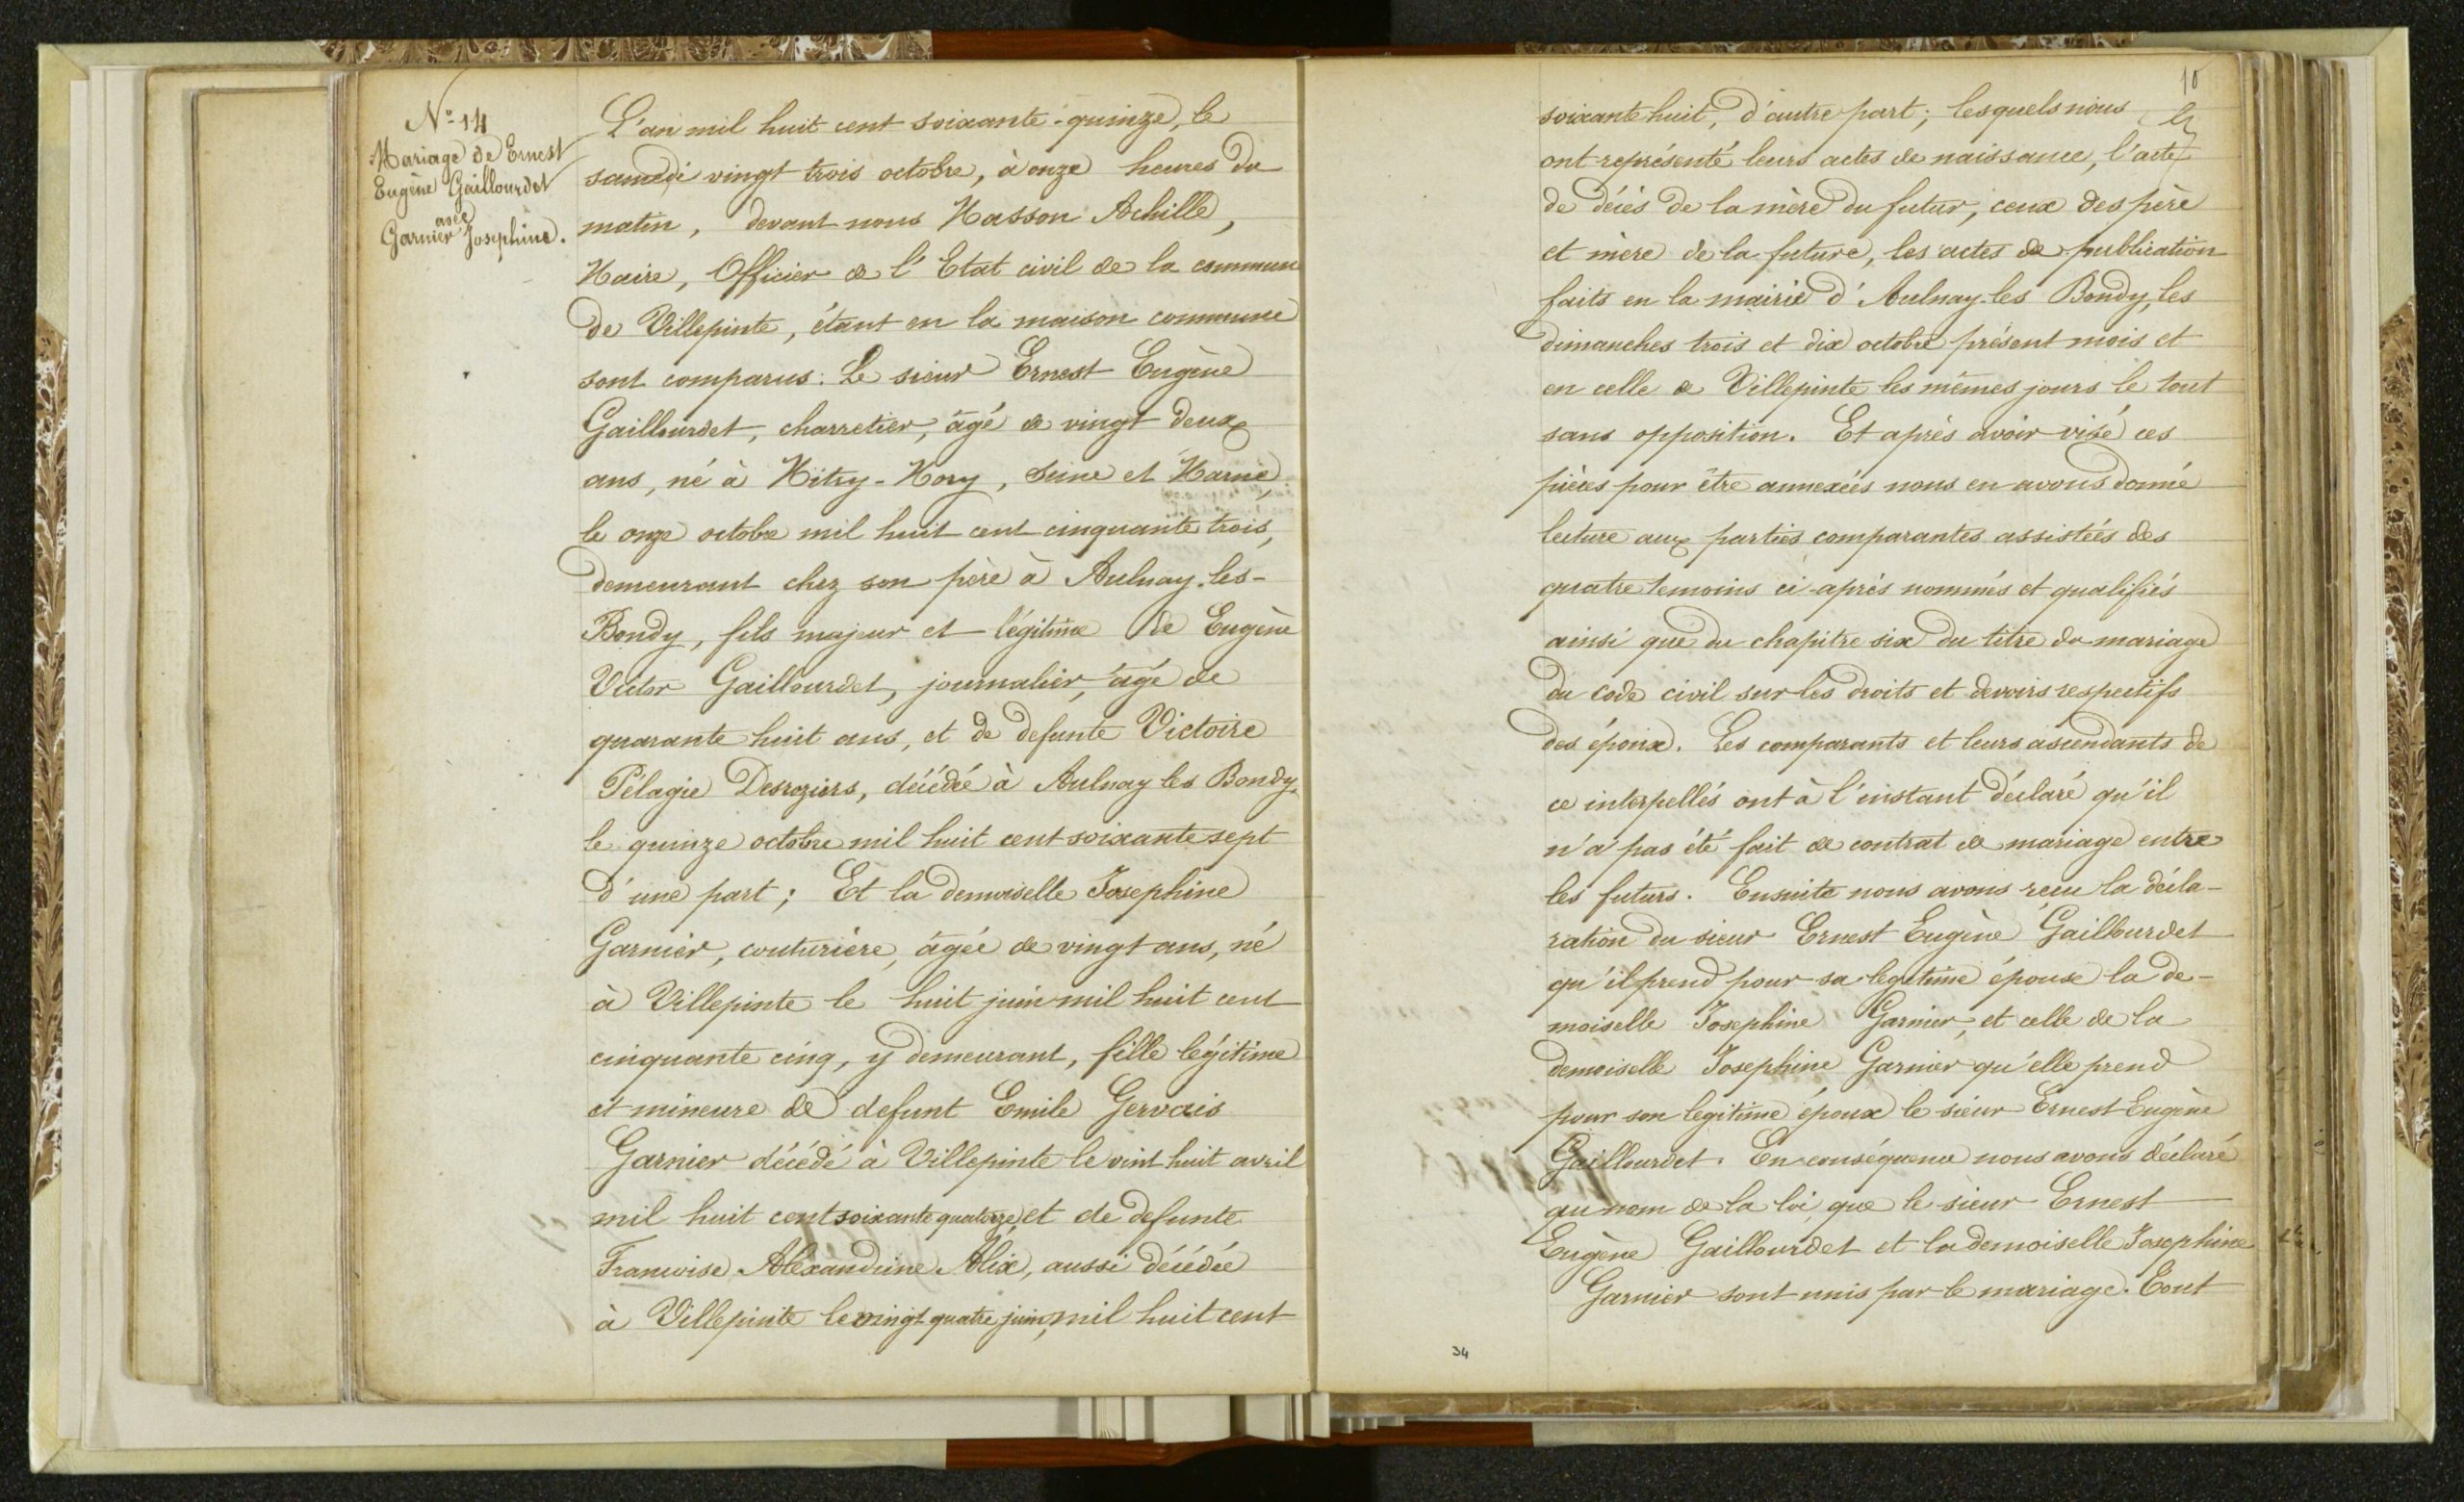 N° 14
Mariage de Ernest
Eugène Gaillourdet
avec
Garnier Josephine.
L'an mil huit cent soixante-quinze, le
samedi vingt trois octobre, à onze heures du
matin, devant nous Masson Achille,
Maire, Officier de l'Etat civil de la commune
de Villepinte, étant en la maison commune
sont comparus: Le sieur Ernest Eugène
Gaillourdet, charretier, âgé de vingt deux
ans, né à Mitry-Mory, Seine et Marne,
le onze octobre mil huit cent cinquante trois,
demeurant chez son père à Aulnay-les-
Bondy, fils majeur et légitime de Eugène
Victor Gaillourdet, journalier, âgé de
quarante huit ans, et de defunte Victoire
Pélagie Desroziers, décédée à Aulnay les Bondy,
le quinze octobre mil huit cent soixante sept
d'une part; Et la demoiselle Josephine
Garnier, couturière, âgée de vingt ans, né
à Villepinte le huit juin mil huit cent
cinquante cinq, y demeurant, fille légitime
et mineure de defunt Emile Gervais
Garnier décédé à Villepinte le vint huit avril
mil huit cent soixante quatorze, et de defunte
Francoise Alexandrine Alix, aussi décédée
à Villepinte le vingt quatre juin, mil huit cent
10
soixante huit, d'autre part; lesquels nous
ont représenté leurs actes de naissance, l'acte
de décès de la mère du futur, ceux des père
et mère de la future, les actes de publication
faits en la mairie d'Aulnay-les Bondy, les
dimanches trois et dix octobre présent mois et
en celle de Villepinte les mêmes jours le tout
sans opposition. Et après avoir visé ces
pièces pour être annexées nous en avons donné
lecture aux parties comparantes assistées des
quatre temoins ci-après nommés et qualifiés
ainsi que du chapitre six du titre du mariage
du code civil sur les droits et devoirs respectifs
des époux. Les comparants et leurs ascendants de
ce interpellés ont à l'instant déclaré qu'il
n'a pas été fait de contrat de mariage entre
les futurs. Ensuite nous avons reçu la décla-
ration du sieur Ernest Eugène Gaillourdet
qu'il prend pour sa legitime épouse la de-
moiselle Josephine Garnier, et celle de la
demoiselle Josephine Garnier qu'elle prend
pour son legitime époux le sieur Ernest Eugène
Gaillourdet. En conséquence nous avons déclaré
au nom de la loi, que le sieur Ernest
Eugène Gaillourdet et la demoiselle Josephine
Garnier sont unis par le mariage. Tout
34